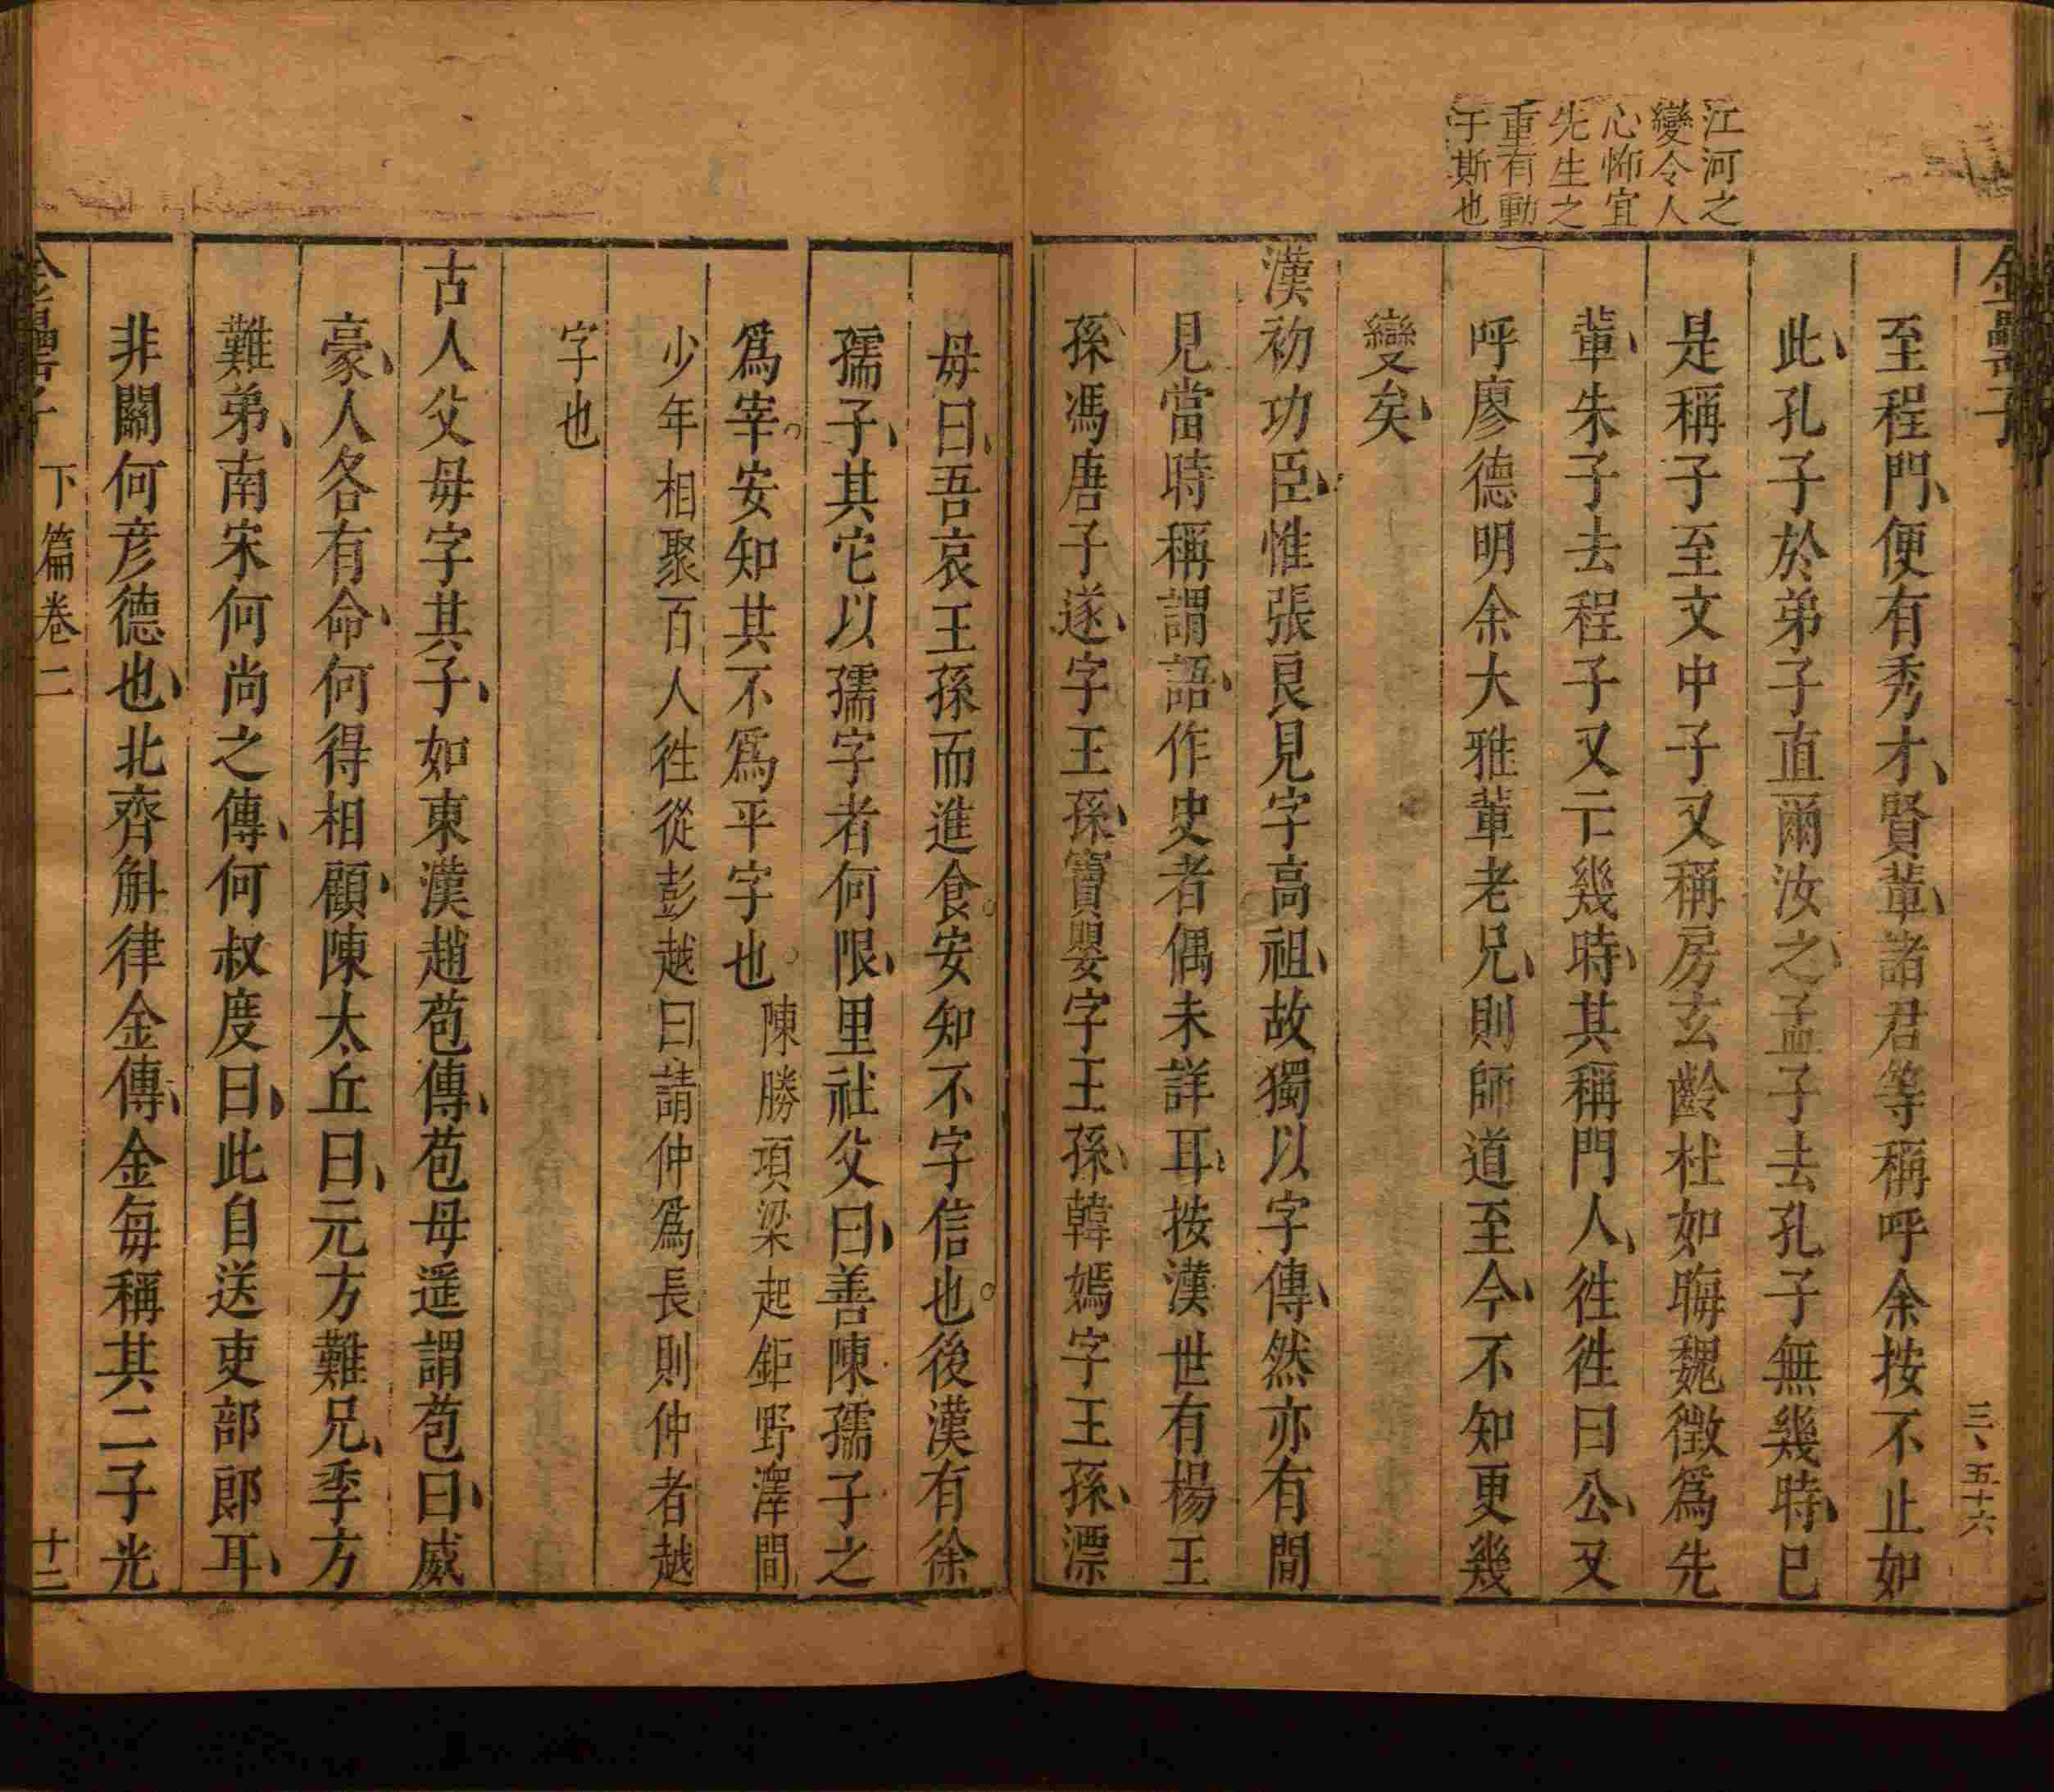 金罍子
三、五十六
江河之
變令人
心怖宜
先生之
重有動
于斯也
至程門便有秀才賢輩諸君等稱呼余按不止如
此孔子於弟子直爾汝之孟子去孔子無幾時已
是稱子至文中子又稱房玄齡杜如晦魏徴爲先
輩朱子去程子又亡幾時其稱門人徃徃曰公又
呼廖德明余大雅輩老兄則師道至今不知更幾
變矣
漢初功臣惟張良見字高祖故獨以字傳然亦有間
見當時稱謂語作史者偶未詳耳按漢世有楊王
孫馮唐子遂字王孫竇嬰字王孫韓嫣字王孫漂
母曰吾哀王孫而進食安知不字信也後漢有徐
孺子其它以孺字者何限里社父曰善陳孺子之
爲宰安知其不爲平字也陳勝項梁起鉅野澤間
少年相聚百人徃從彭越曰請仲爲長則仲者越
字也
古人父母字其子如東漢趙苞傳苞母遥謂苞曰威
豪人各有命何得相顧陳太丘曰元方難兄季方
難弟南宋何尚之傳何叔度曰此自送吏部郎耳
非關何彦德也北齊斛律金傳金每稱其二子光
金罍子 下篇卷二 十二